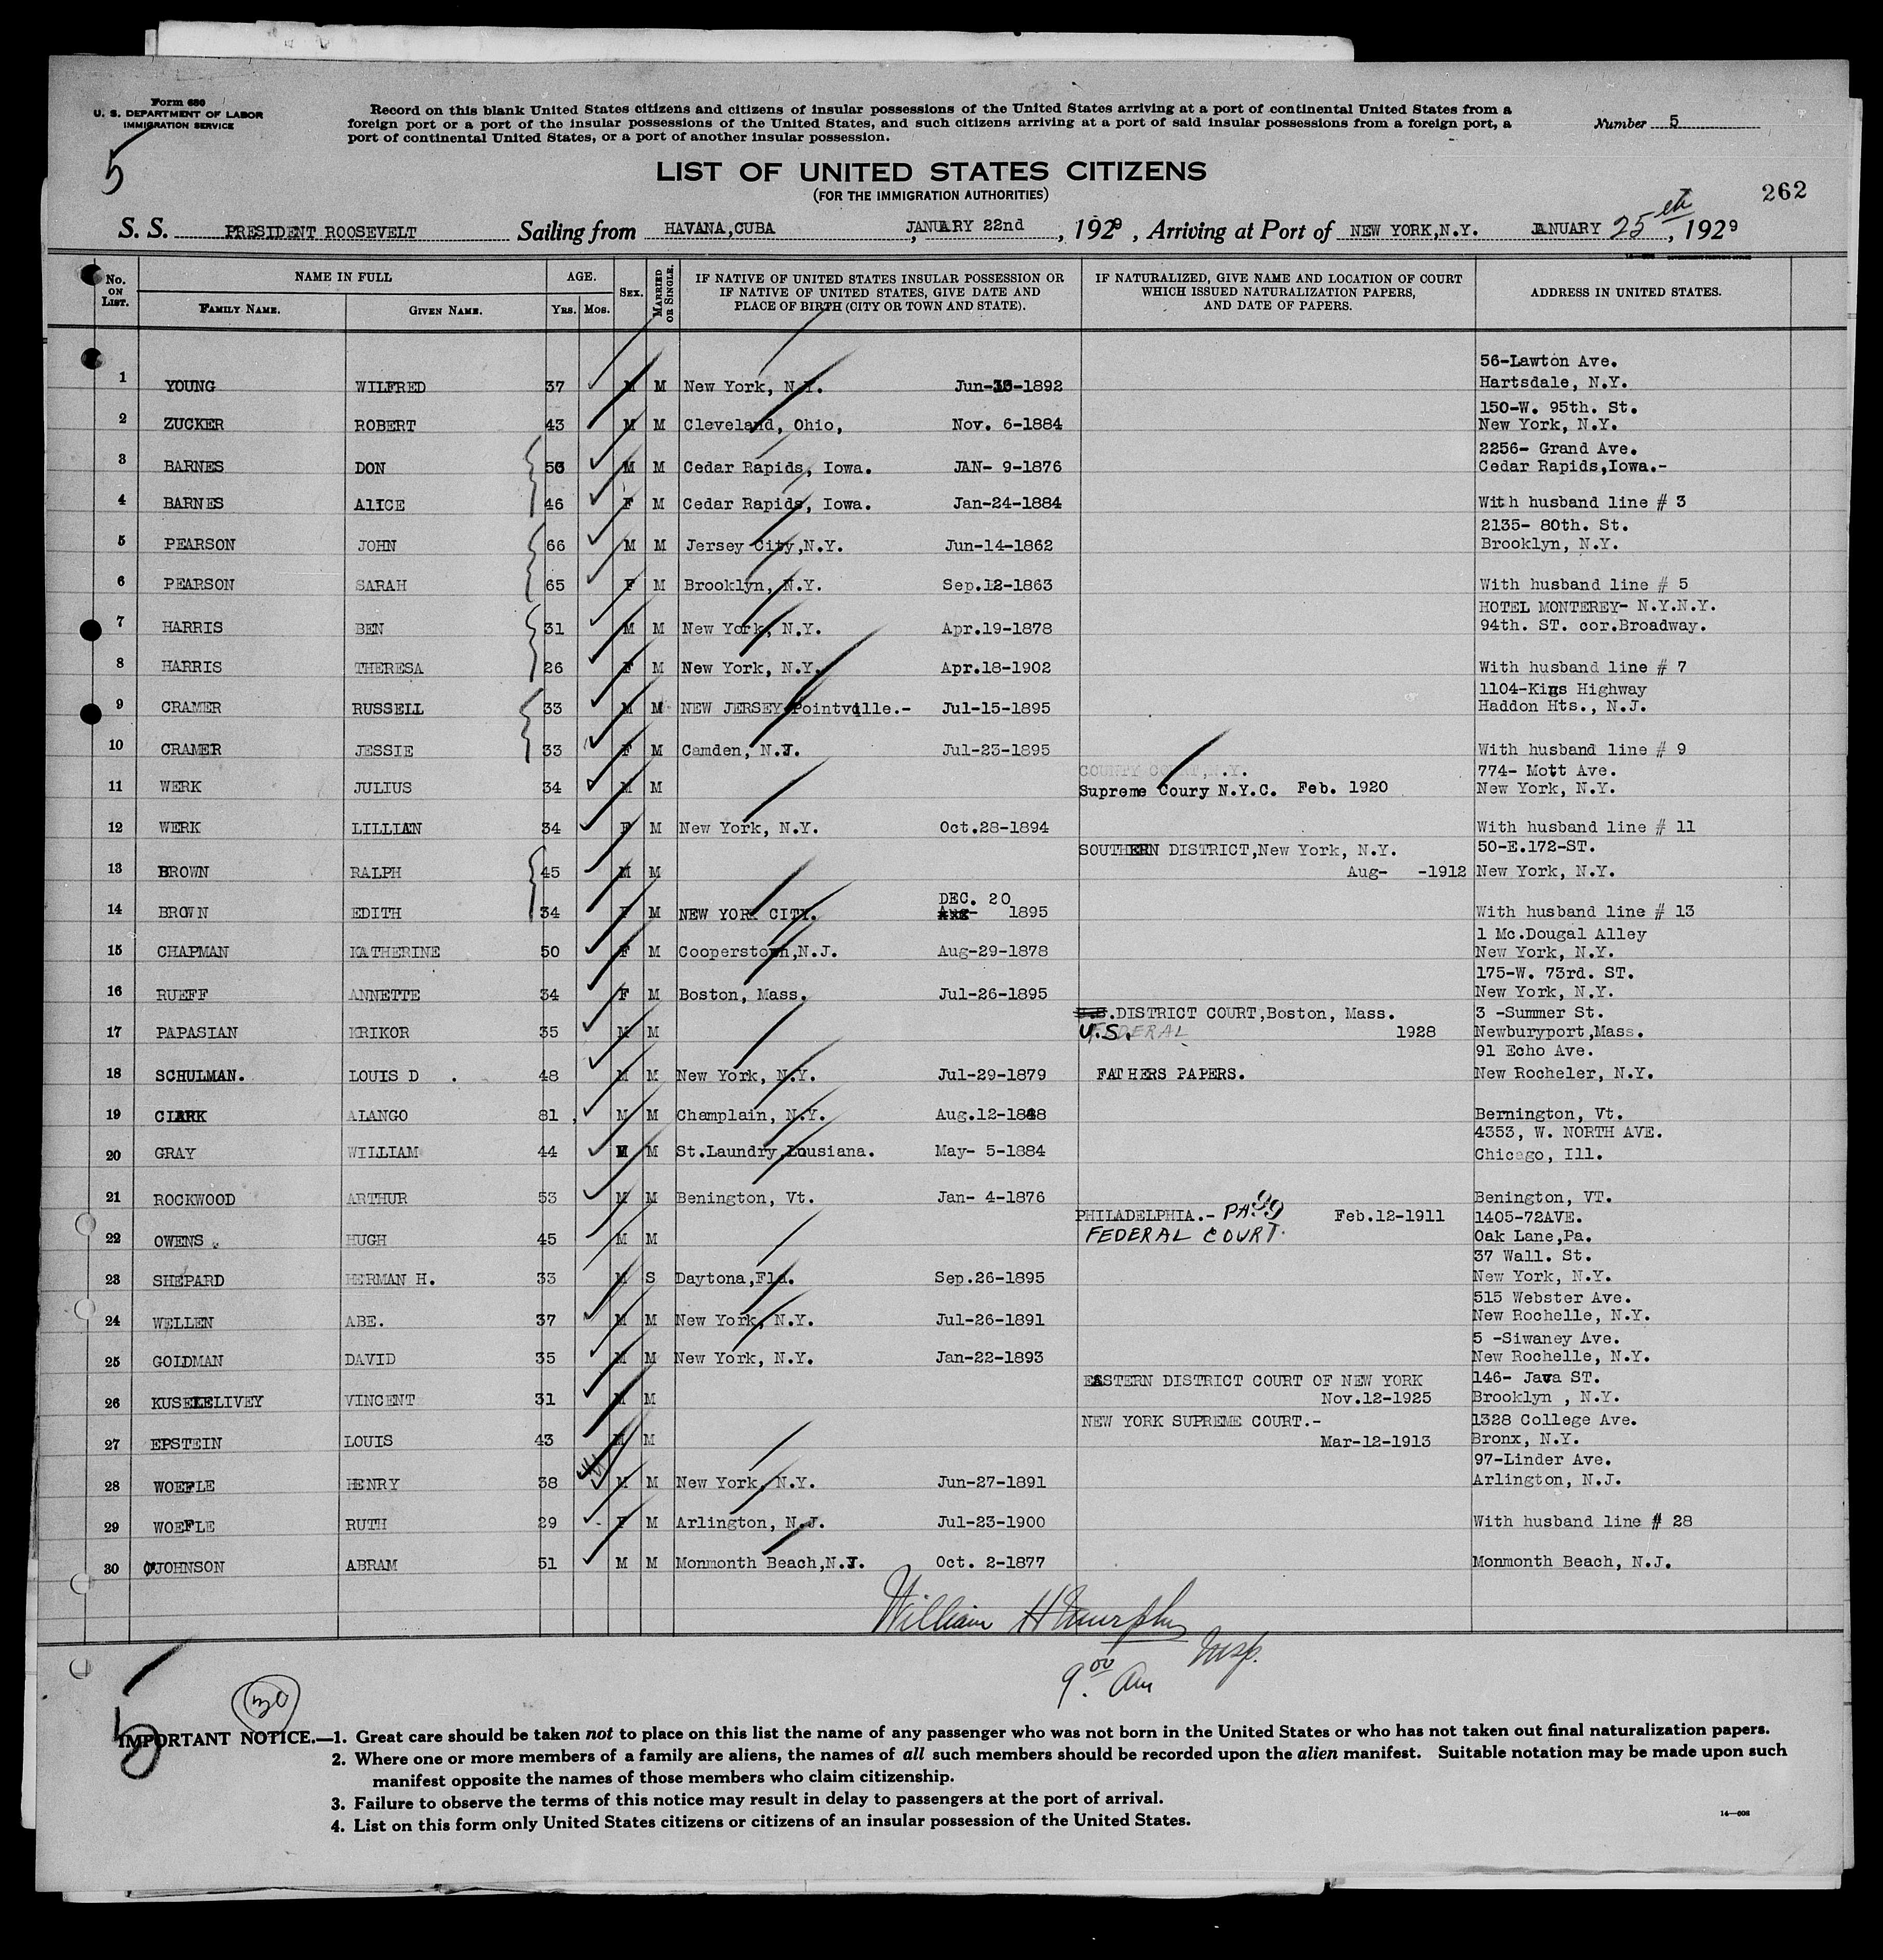 Form 630
U. S. DEPARTMENT OF LABOR
IMMIGRATION SERVICE
Record on this blank United States citizens and citizens of insular possessions of the United States arriving at a port of continental United States from a
foreign port or a port of the insular possessions of the United States, and such citizens arriving at a port of said insular possessions from a foreign port, a
port of continental United States, or a port of another insular possession.
Number 5
5
LIST OF UNITED STATES CITIZENS
(FOR THE IMMIGRATION AUTHORITIES)
262
S. S. PRESIDENT ROOSEVELT Sailing from HAVANA,CUBA , JANUARY 22nd , 1929 , Arriving at Port of NEW YORK,N.Y. JANUARY 25th , 1929
No. ON LIST. NAME IN FULL AGE. SEX. MARRIED OR SINGLE. IF NATIVE OF UNITED STATES INSULAR POSSESSION OR IF NATIVE OF UNITED STATES, GIVE DATE AND PLACE OF BIRTH (CITY OR TOWN AND STATE). IF NATURALIZED, GIVE NAME AND LOCATION OF COURT WHICH ISSUED NATURALIZATION PAPERS, AND DATE OF PAPERS. ADDRESS IN UNITED STATES.
FAMILY NAME. GIVEN NAME. YRS. MOS.
56-Lawton Ave.
1 YOUNG WILFRED 37 M M New York, N.Y. 1892 Hartsdale, N.Y.
150-W. 95th. St.
2 ZUCKER ROBERT 43 M M Cleveland, Ohio, Nov. 6-1884 New York, N.Y.
2256- Grand Ave.
3 BARNES DON M M Cedar Rapids, Iowa. JAN- 9-1876 Cedar Rapids,Iowa.-
4 BARNES AlICE 46 F M Cedar Rapids, Iowa. Jan-24-1884 With husband line # 3
2135- 80th. St.
5 PEARSON JOHN 66 M M Jersey City,N.Y. Jun-14-1862 Brooklyn, N.Y.
6 PEARSON SARAH 65 F M Brooklyn, N.Y. Sep.12-1863 With husband line # 5
HOTEL MONTEREY- N.Y.N.Y.
7 HARRIS BEN 31 M M New York, N.Y. Apr.19-1878 94th. ST. cor.Broadway.
8 HARRIS THERESA 26 F M New York, N.Y. Apr.18-1902 With husband line # 7
1104-Kings Highway
9 CRAMER RUSSELL 33 M M NEW JERSEY Pointville.- Jul-15-1895 Haddon Hts., N.J.
10 CRAMER JESSIE 33 F M Camden, N.J. Jul-23-1895 With husband line # 9
COUNTY COURT,N.Y. 774- Mott Ave.
11 WERK JULIUS 34 M M Supreme Coury N.Y.C. Feb. 1920 New York, N.Y.
12 WERK LILLIAN 34 F M New York, N.Y. Oct.28-1894 With husband line # 11
SOUTHERN DISTRICT,New York, N.Y. 50-E.172-ST.
13 BROWN RALPH 45 M M Aug- -1912 New York, N.Y.
DEC. 20
14 BROWN EDITH 34 F M NEW YORK CITY. 1895 With husband line # 13
1 Mc.Dougal Alley
15 CHAPMAN KATHERINE 50 F M Cooperstown,N.J. Aug-29-1878 New York, N.Y.
175-W. 73rd. ST.
16 RUEFF ANNETTE 34 F M Boston, Mass. Jul-26-1895 New York, N.Y.
U.S.DISTRICT COURT,Boston, Mass. 3 -Summer St.
17 PAPASIAN KRIKOR 35 M M U.S. FEDERAL 1928 Newburyport,Mass.
91 Echo Ave.
18 SCHULMAN. LOUIS D . 48 M M New York, N.Y. Jul-29-1879 FATHERS PAPERS. New Rocheler, N.Y.
19 ClARK ALANGO 81 , M M Champlain, N.Y. Aug.12-1848 Bernington, Vt.
4353, W. NORTH AVE.
20 GRAY WILLIAM 44 M M St.Laundry,Lousiana. May- 5-1884 Chicago, Ill.
21 ROCKWOOD ARTHUR 53 M M Benington, Vt. Jan- 4-1876 Benington, VT.
PHILADELPHIA.- PA 99 Feb.12-1911 1405-72AVE.
22 OWENS. HUGH 45 M M FEDERAL COURT. Oak Lane,Pa.
37 Wall. St.
23 SHEPARD HERMAN H. 33 M S Daytona,Fla. Sep.26-1895 New York, N.Y.
515 Webster Ave.
24 WELLEN ABE. 37 M M New York, N.Y. Jul-26-1891 New Rochelle, N.Y.
5 -Siwaney Ave.
25 GOlDMAN DAVID 35 M M New York, N.Y. Jan-22-1893 New Rochelle, N.Y.
EASTERN DISTRICT COURT OF NEW YORK 146- Java ST.
26 KUSELELIVEY VINCENT 31 M M Nov.12-1925 Brooklyn , N.Y.
NEW YORK SUPREME COURT.- 1328 College Ave.
27 EPSTEIN LOUIS 43 M M Mar-12-1913 Bronx, N.Y.
97-Linder Ave.
28 WOEFLE HENRY 38 M M New York, N.Y. Jun-27-1891 Arlington, N.J.
29 WOEFLE RUTH 29 F M Arlington, N.J. Jul-23-1900 With husband line # 28
30 JOHNSON ABRAM 51 M M Monmonth Beach,N.J. Oct. 2-1877 Monmonth Beach, N.J.
William H Murphy
Insp.
9.00 Am
30
5
IMPORTANT NOTICE.—1. Great care should be taken not to place on this list the name of any passenger who was not born in the United States or who has not taken out final naturalization papers.
2. Where one or more members of a family are aliens, the names of all such members should be recorded upon the alien manifest. Suitable notation may be made upon such
manifest opposite the names of those members who claim citizenship.
3. Failure to observe the terms of this notice may result in delay to passengers at the port of arrival.
4. List on this form only United States citizens or citizens of an insular possession of the United States.
14—608